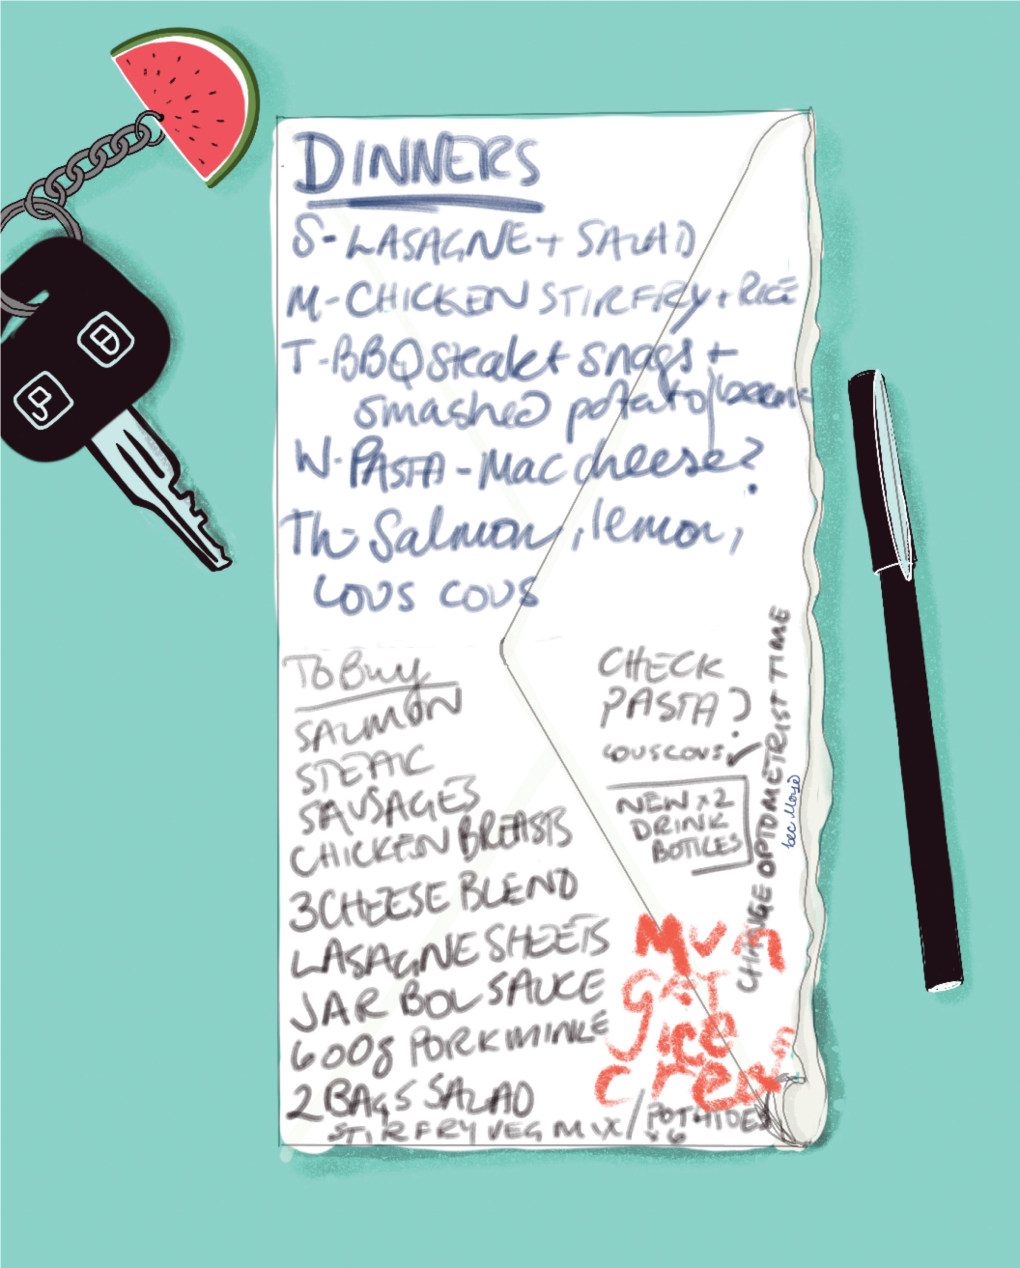 DINNERS
S-LASAGNE + SALAD
M-CHICKEN STIRFRY + RICE
T-BBQ steak + snags +
smashed potato/beans
W-PASTA - Mac cheese?
Th-Salmon, lemon,
COUS COUS
TO BUY
SALMON
STEAK
SAUSAGES
CHICKEN BREASTS
3 CHEESE BLEND
LASAGNE SHEETS
JAR BOL SAUCE
600g PORK MINCE
2 BAGS SALAD
STIRFRY VEG MIX / POTATOES
x6
CHECK
PASTA?
COUSCOUS ✓
NEW x2
DRINK
BOTTLES
CHANGE OPTOMETRIST TIME
bec Morse
Mum
GET
ice
cream